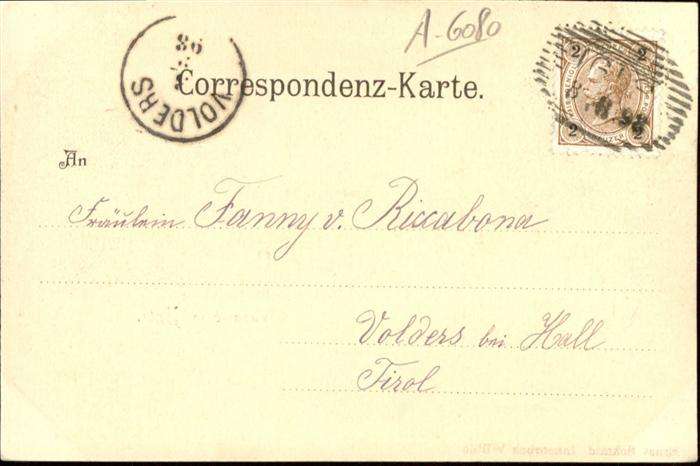 A-6080
98
VOLDERS
Correspondenz-Karte.
2 2
8 98
2 2
An
Fräulein Fanny v. Riccabona
Volders bei Hall
Tirol